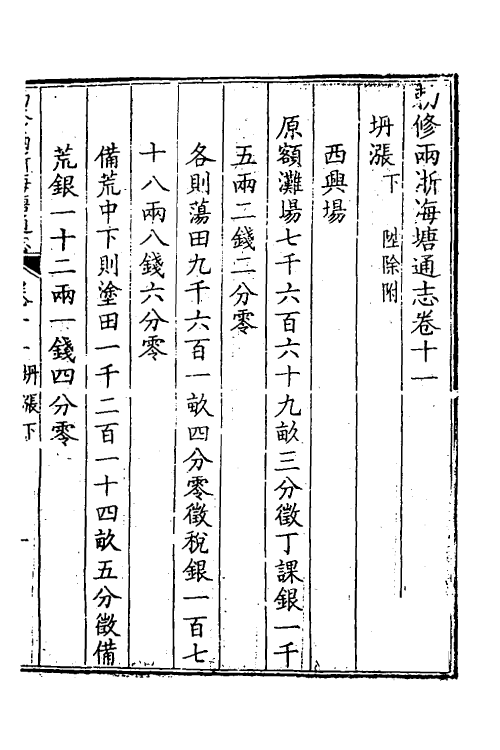 勅修兩浙海塘通志卷十一
坍漲下 陞除附
西興場
原額灘場七千六百六十九畝三分徵丁課銀一千
五兩二錢二分零
各則蕩田九千六百一畝四分零徵稅銀一百七
十八兩八錢六分零
備荒中下則塗田一千二百一十四畝五分徵備
荒銀一十二兩一錢四分零
兩浙海塘通志 卷十一 坍漲下 一